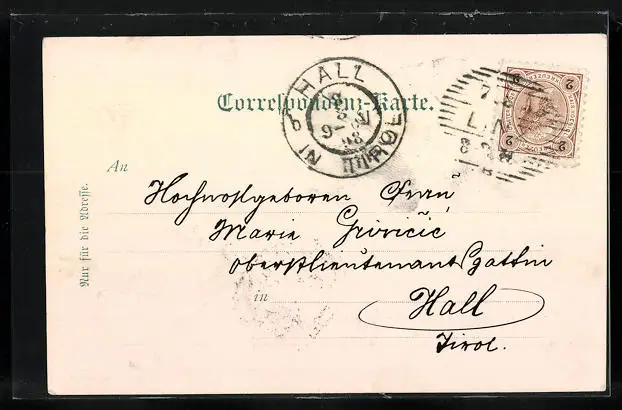 Correspondenz-Karte.
HALL
IN TIROL
2 2
An
Hochwohlgeboren Frau
Marie Grivičić
Oberstlieutenants Gattin
in Hall
Tirol.
Nur für die Adresse.